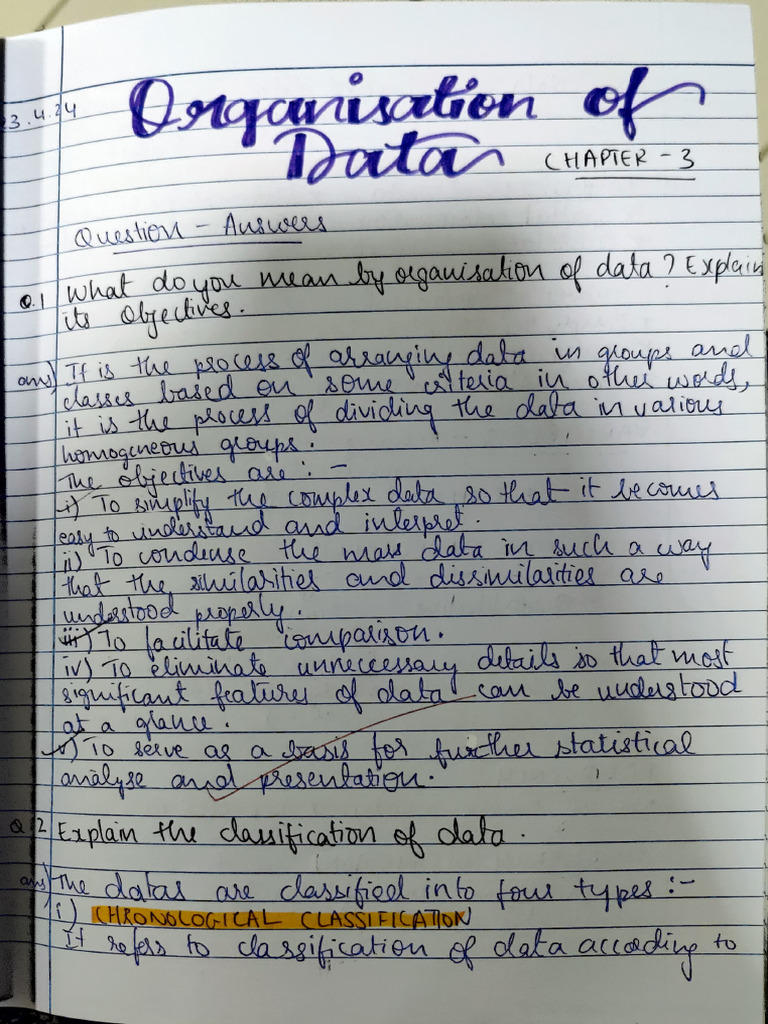 3.4.24
Organisation of
Data
CHAPTER - 3
Question - Answers
Q.1 What do you mean by organisation of data? Explain
its objectives.
ans) It is the process of arranging data in groups and
classes based on some criteria in other words,
it is the process of dividing the data in various
homogeneous groups.
The objectives are : -
i) To simplify the complex data so that it becomes
easy to understand and interpret.
ii) To condense the mass data in such a way
that the similarities and dissimilarities are
understood properly.
iii) To facilitate comparison.
iv) To eliminate unneccessary details so that most
significant features of data can be understood
at a glance.
v) To serve as a basis for further statistical
analyse and presentation.
Q.2 Explain the classification of data.
ans) The datas are classified into four types :-
i) CHRONOLOGICAL CLASSIFICATION
It refers to classification of data according to